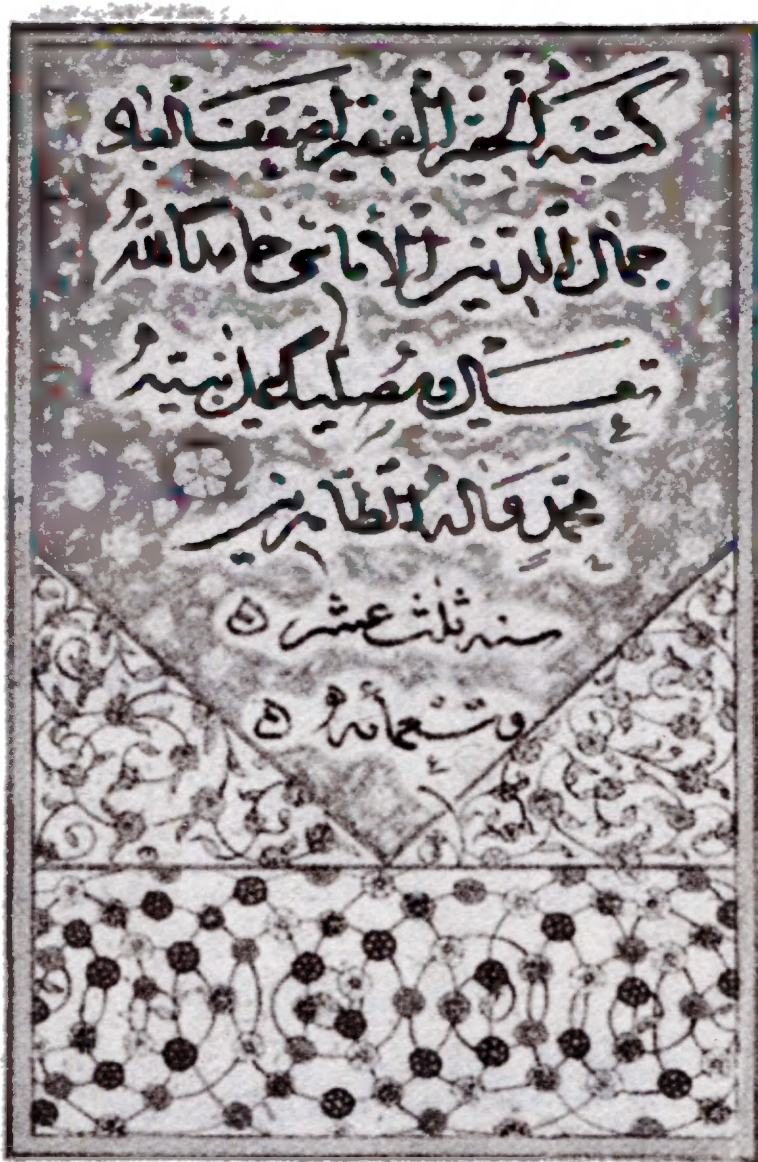 كتبه الحقير الفقير اضعف العباد
جمال الدين الأماسی حامدا لله
تعالى ومصليا على نبيه
محمد واله الطاهرين
سنه ثلث عشر
وتسعمائه